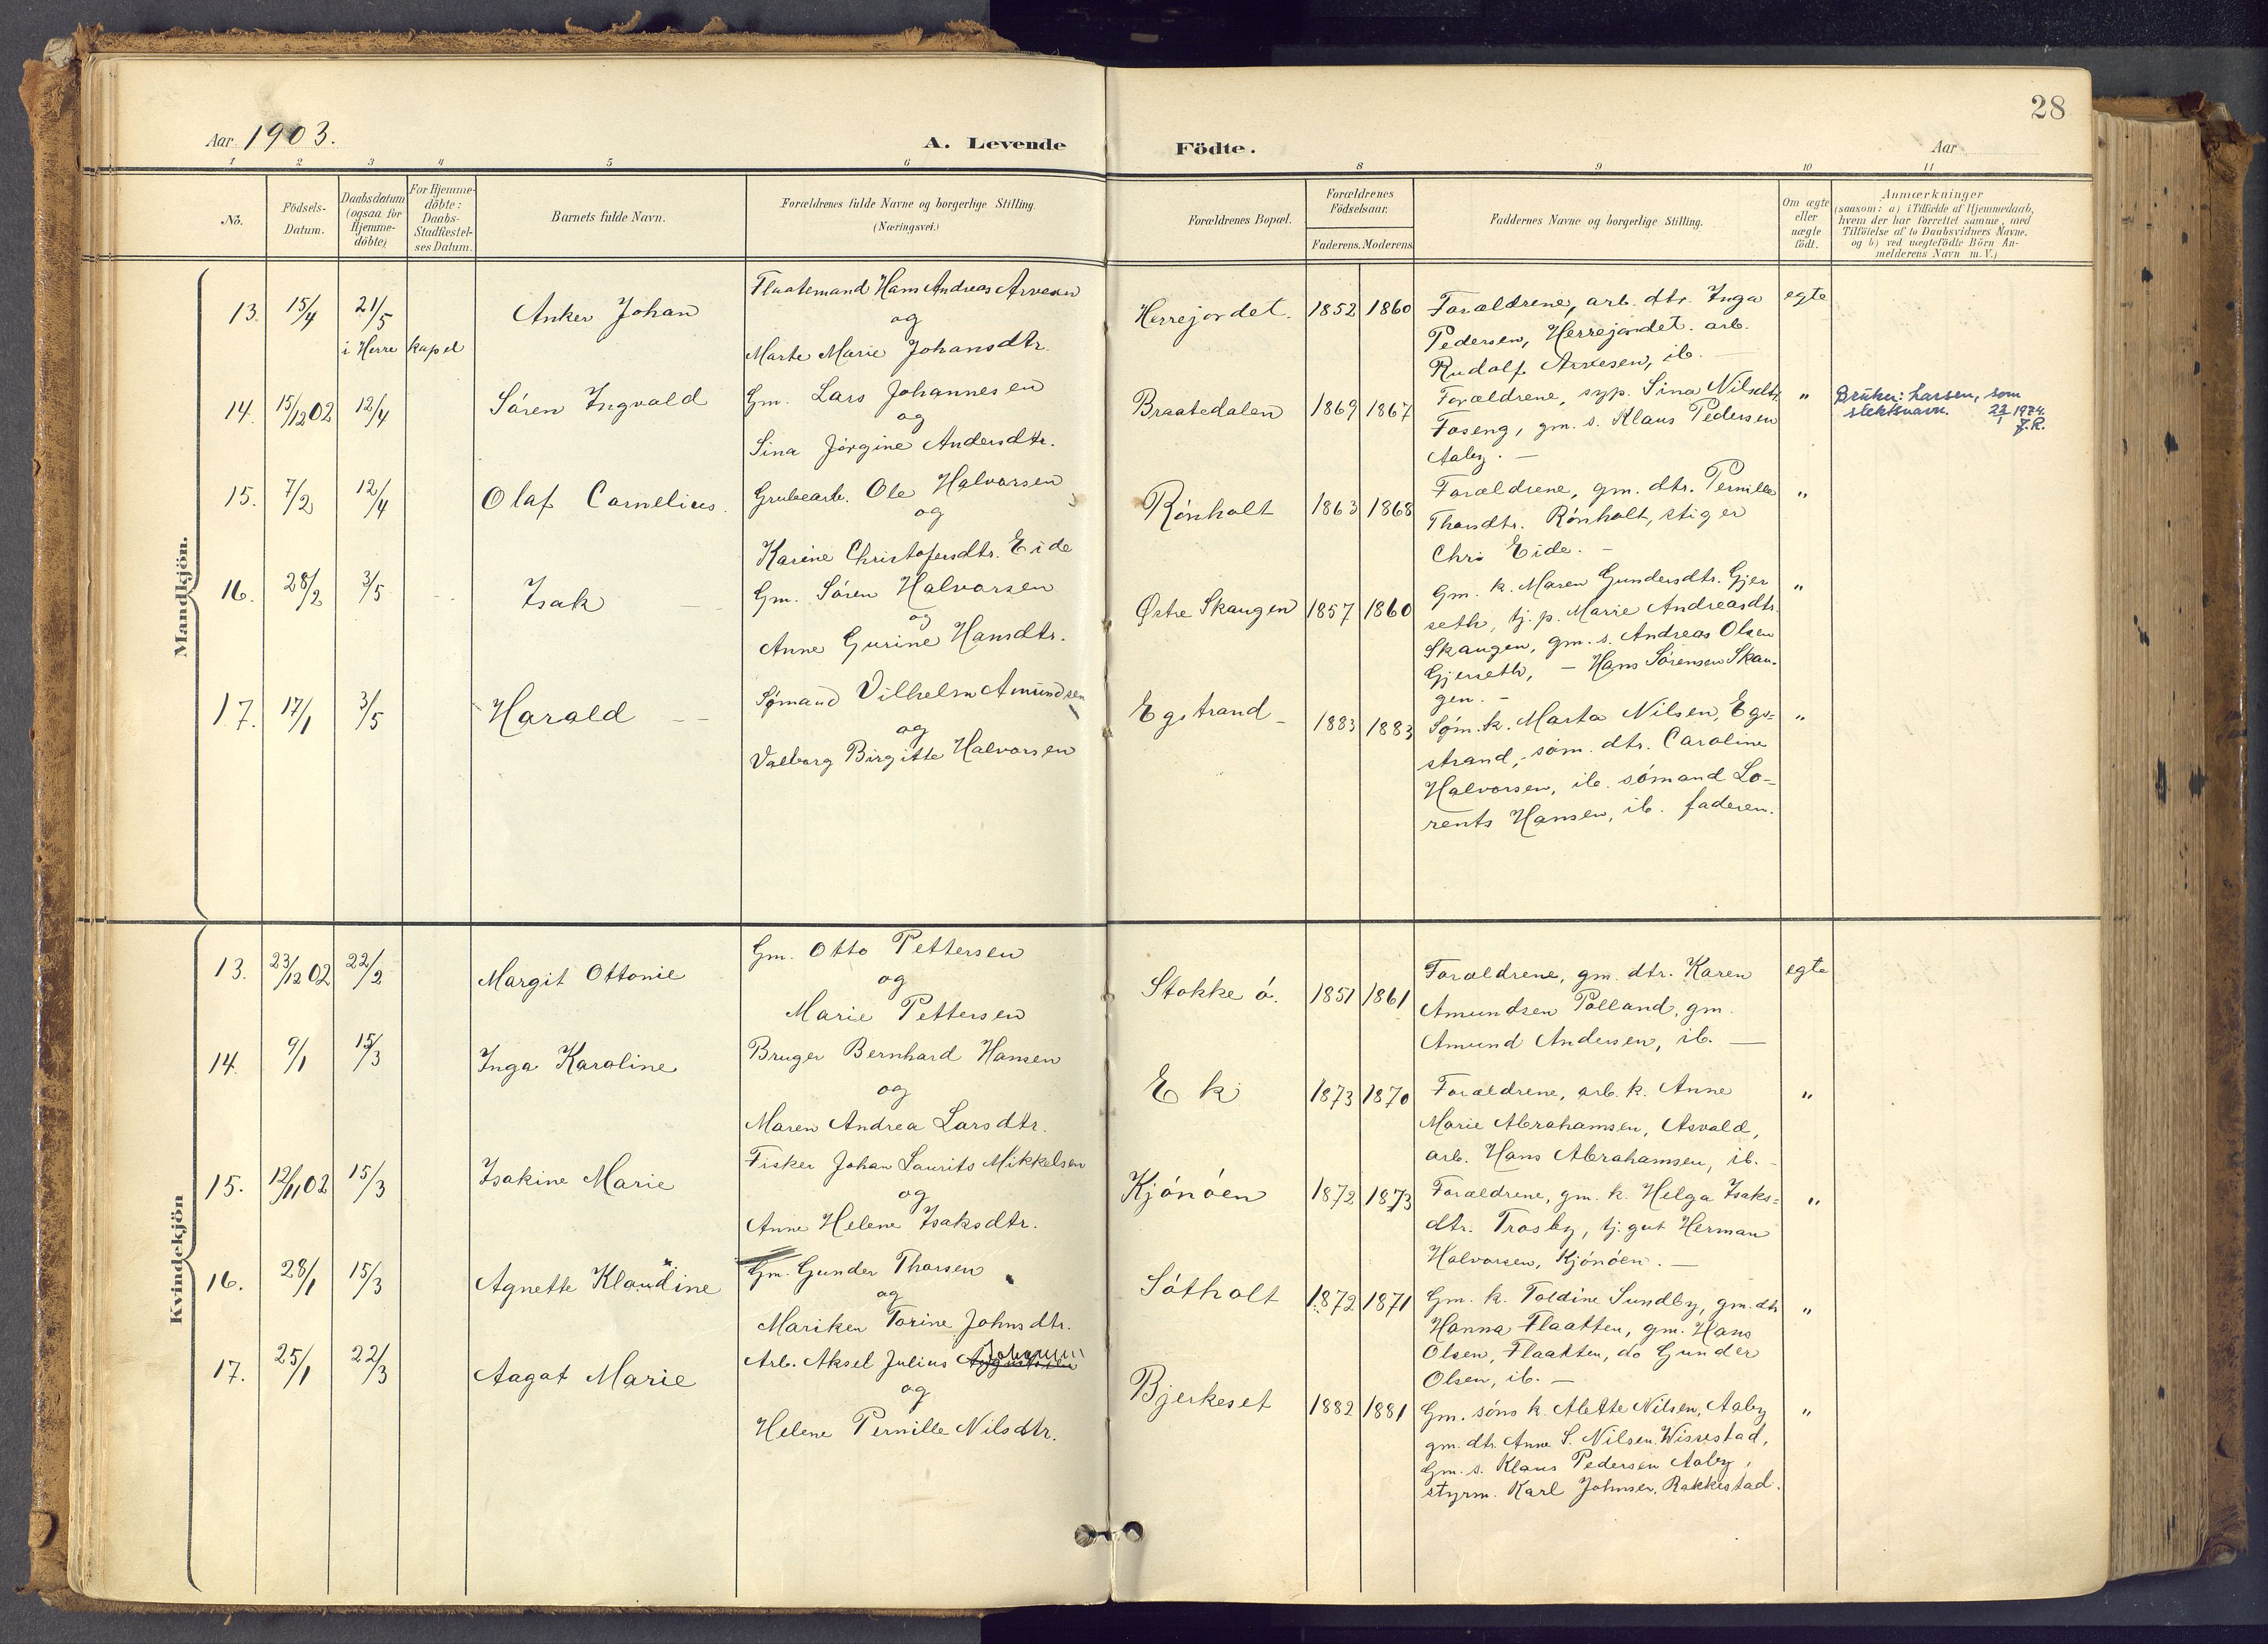 28
Aar 1903.
A. Levende Födte.
Aar
1 2 3 4 5 6 8 9 10 11
No.
Födsels-Datum.
Daabsdatum (ogsaa for Hjemme-döbte)
For Hjemme-döbte: Daabs-Stadfæstel-ses Datum.
Barnets fulde Navn.
Forældrenes fulde Navne og borgerlige Stilling.
(Næringsvei.)
Forældrenes Bopæl.
Forældrenes Födselsaar.
Faderens. Moderens.
Faddernes Navne og borgerlige Stilling.
Om ægte eller uægte födt.
Anmærkninger
(saasom: a) i Tilfælde af Hjemmedaab,
hvem der har forrettet samme, med
Tilföielse af to Daabsvidners Navne.
og b) ved uægtefödte Börn An-
melderens Navn m. V.)
Mandkjön.
13. 15/4 21/5 i Herre kapel
Anker Johan
Flaatemand Hans Andreas Arvesen
og
Marte Marie Johansdtr.
Herrejordet. 1852 1860
Forældrene, arb. dtr. Inga
Pedersen, Herrejordet. arb.
Rudolf Arvesen, ib. —
egte
14. 15/12 02 12/4
Sören Ingvald
Gm. Lars Johannesen
og
Sina Jörgine Andersdtr.
Braatedalen 1869 1867
Forældrene, syp. Sina Nilsdtr.
Foseng, gm. s. Klaus Pedersen
Aaby. —
"
Bruker: Larsen, som
slektsnavn. 23/1 1924.
J.R.
15. 7/2 12/4
Olaf Cornelius.
Grubearb. Ole Halvorsen
og
Karine Christofersdtr. Eide
Rönholt 1863 1868
Forældrene, gm. dtr. Pernille
Thorsdtr. Rönholt, stiger
Chrs Eide. —
"
16. 28/2 3/5
Isak —
Gm. Sören Halvorsen
og
Anne Gurine Hansdtr.
Østre Skaugen 1857 1860
Gm. k. Maren Gundersdtr. Gjer
seth, tj. p. Marie Andreasdtr.
Skaugen, gm. s. Andreas Olsen
Gjerseth, — Hans Sörensen Skau-
gen. —
"
17. 17/1 3/5
Harald — —
Sømand Vilhelm Amundsen
og
Valborg Birgitte Halvorsen
Egstrand — 1883 1883
Søm. k. Marta Nilsen, Egs=
strand, söm. dtr. Caroline
Halvorsen, ib. sömand Lo-
rents Hansen, ib. faderen.
"
Kvindekjön
13. 23/12 02 22/2
Margit Ottonie
Gm. Otto Pettersen
og
Marie Pettersen
Stokke ö. 1851 1861
Forældrene, gm. dtr. Karen
Amundsen Polland, gm.
Amund Andersen, ib. —
egte
14. 9/1 15/3
Inga Karoline
Bruger Bernhard Hansen
og
Maren Andrea Larsdtr.
Ek 1873 1870
Forældrene, arb. k. Anne
Marie Abrahamsen, Asvald,
arb. Hans Abrahamsen, ib. —
"
15. 12/11 02 15/3
Isakine Marie
Fisker Johan Laurits Mikkelsen
og
Anne Helene Isaksdtr.
Kjönöen 1872 1873
Forældrene, gm. k. Helga Isaks=
dtr. Trosby, tj. gut Herman
Halvorsen, Kjönöen. —
"
16. 28/1 15/3
Agnette Klaudine
Gm. Gunder Thorsen
og
Mariken Torine Johnsdtr.
Sötholt 1872 1871
Gm. k. Toldine Sundby, gm. dtr
Hanna Flaatten, gm. Hans
Olsen, Flaatten, do Gunder
Olsen, ib. —
"
17. 25/1 22/3
Aagot Marie
Arb. Aksel Julius
og
Helene Pernille Nilsdtr.
Bjerkeset 1882 1881
Gm. söns k. Alette Nilsen, Aaby
gm. dtr. Anne S. Nilsen Wissestad,
Gm. s. Klaus Pedersen Aaby,
styrm. Karl Johnsen, Rakkestad.
"